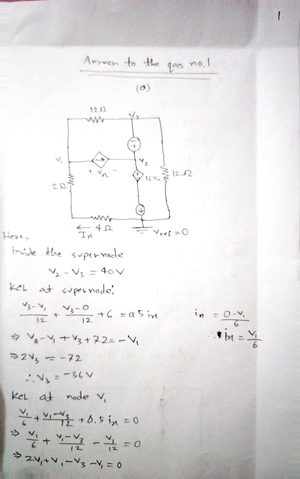 1
Answer to the ques no.1
(a)
12Ω
V₃
V₁
V₂
+ Vx -
2Ω
12Ω
4Ω
Ix
Vref = 0
Here,
inside the supernode
V₂ - V₃ = 40V
KCL at supernode:
(V₃-V₁)/12 + (V₃-0)/12 + 6 = 0.5 ix
ix = (0-V₁)/6
⇒ V₃ - V₁ + V₃ + 72 = -V₁
⇒ 2V₃ = -72
∴ V₃ = -36V
KCL at node V₁
V₁/6 + (V₁-V₃)/12 + 0.5 ix = 0
⇒ V₁/6 + (V₁-V₃)/12 - V₁/12 = 0
⇒ 2V₁ + V₁ - V₃ - V₁ = 0